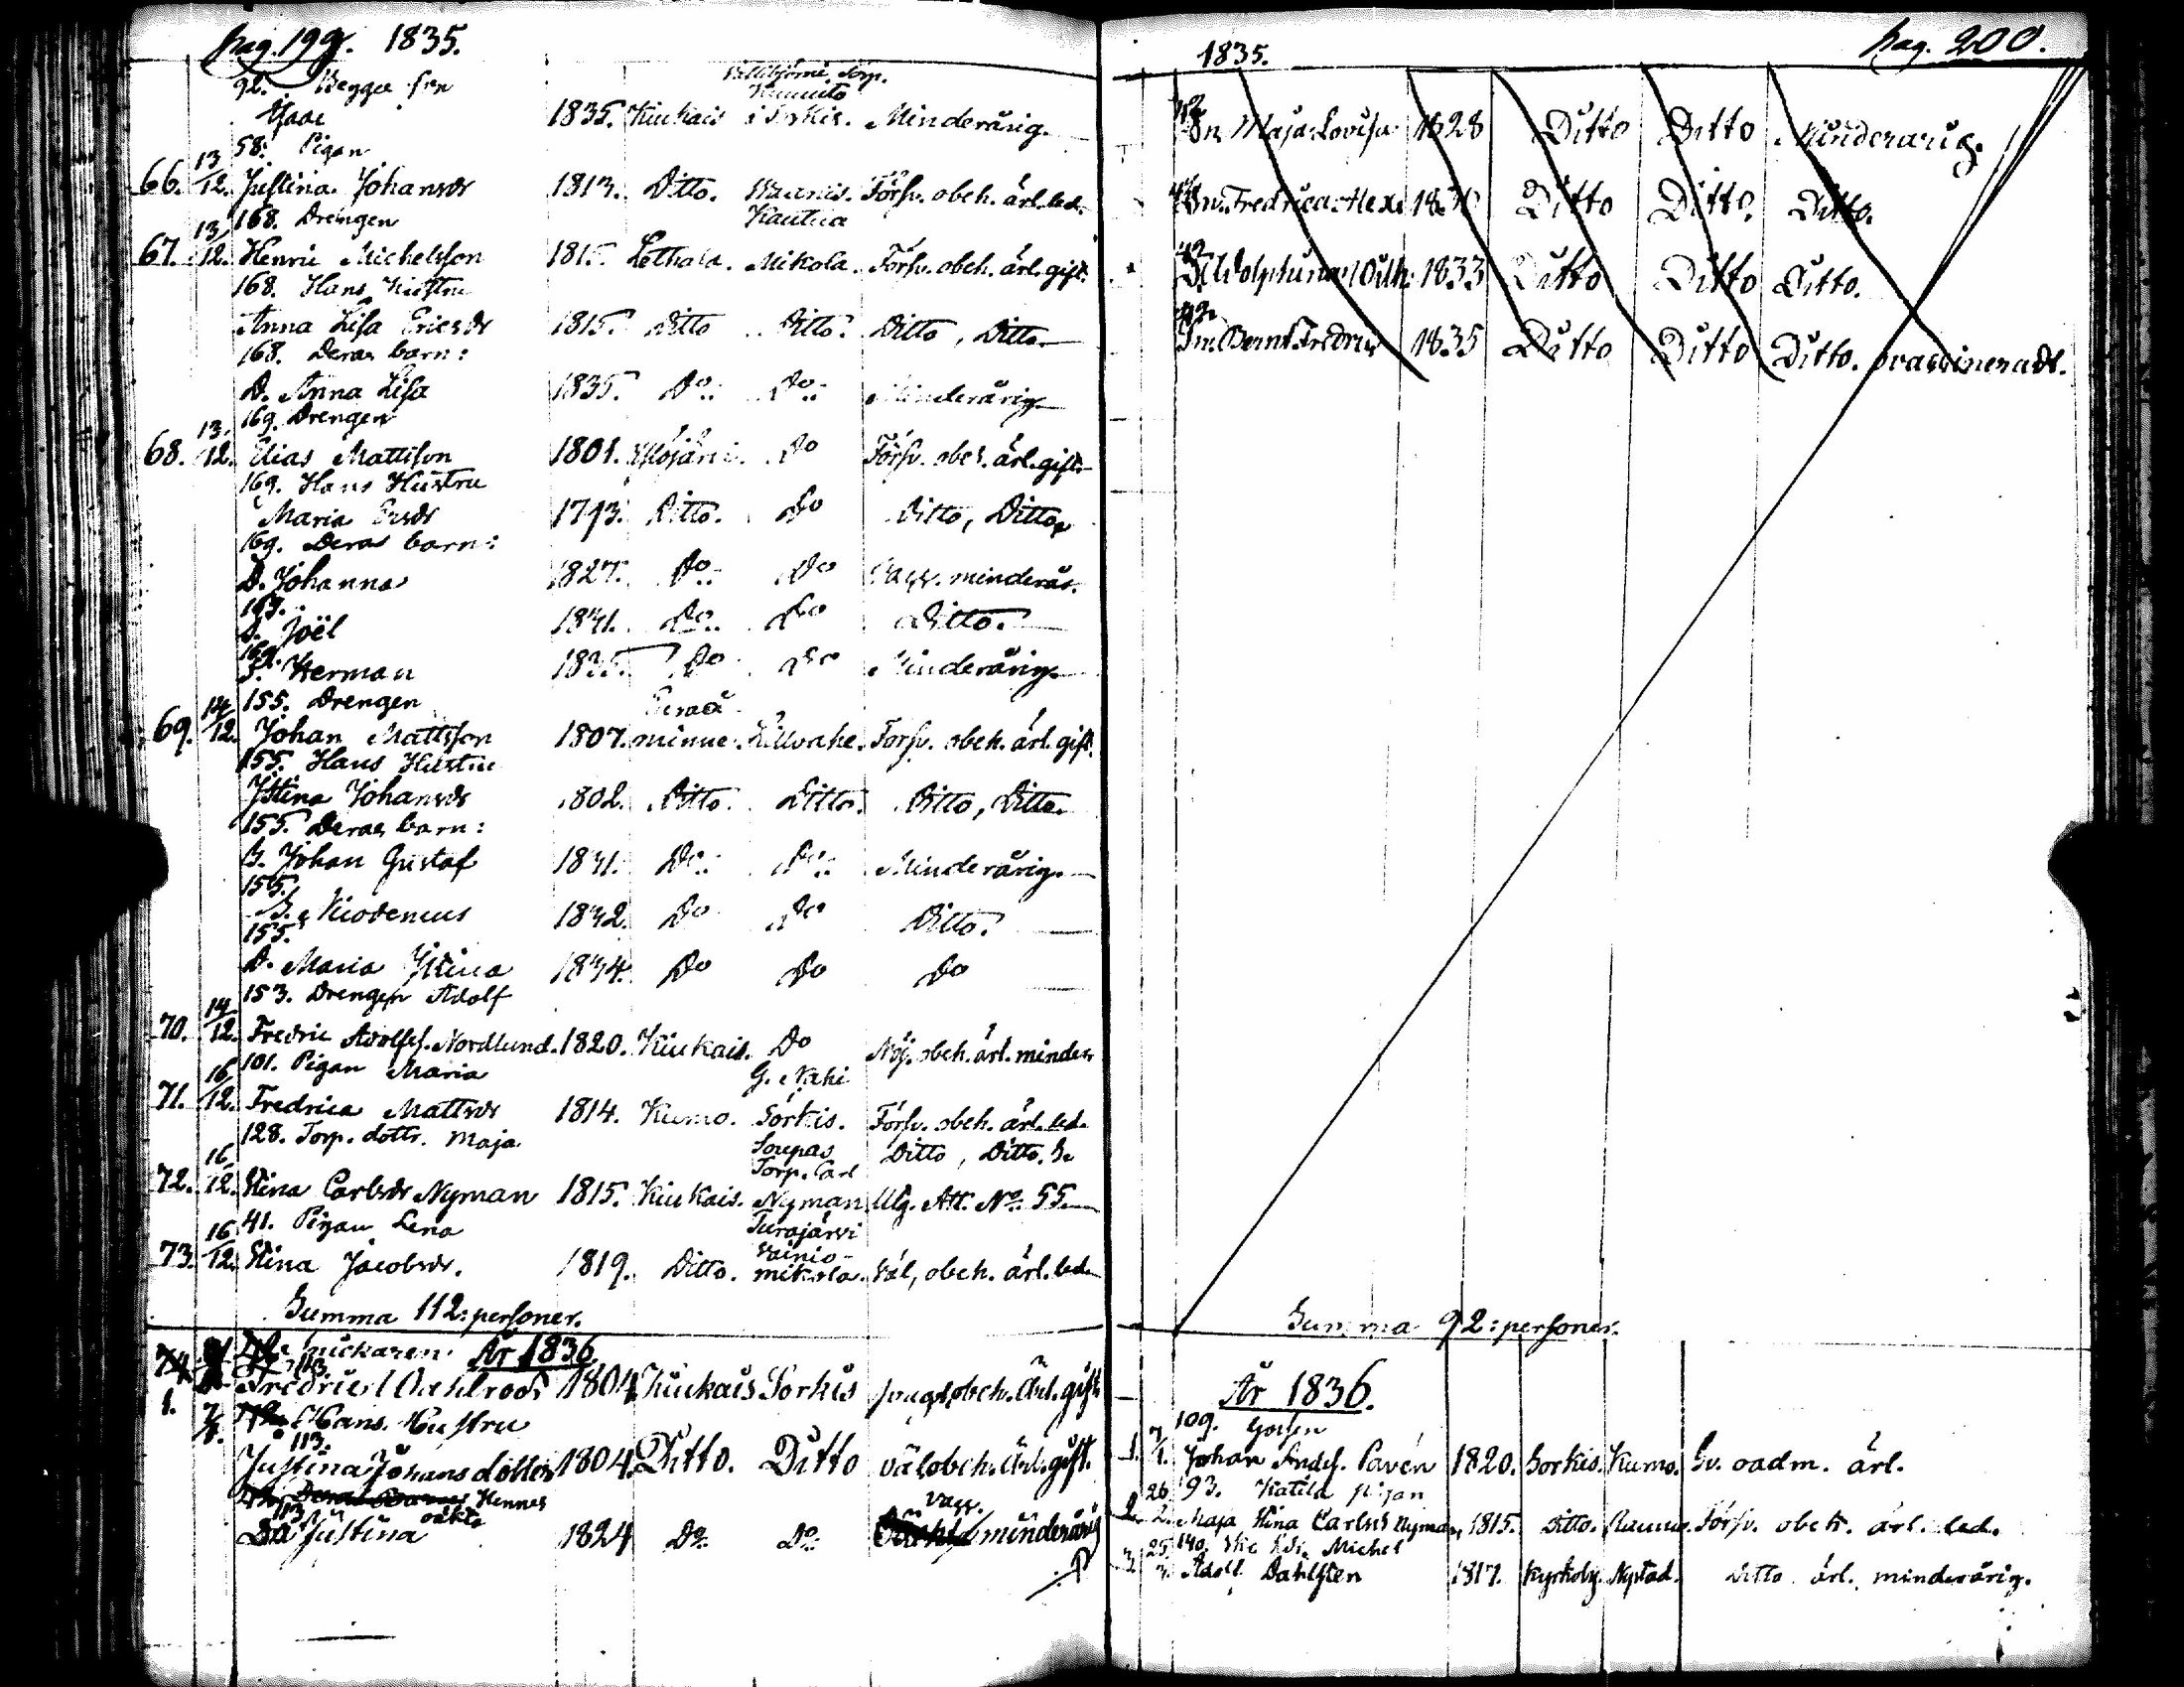 pag. 199. 1835.
92.
1835. Kiukais i Sorkis. Minderårig.
58. Pigan
66. 13/12. Justina Johansdr 1813. Ditto. Försv. obeh. ärl. led.
168. Drengen Kautua
67. 13/12. Henric Michelsson 1815. Mikola. Försv. obeh. ärl. gift.
168. Hans Hustru
Anna Lisa Ericsdr 1815. Ditto Ditto. Ditto, Ditto.
168. Deras barn:
D. Anna Lisa 1835. Do: Do: Minderårig
169. Drengen
68. 13/12. Elias Mattsson 1801. Do Försv. obeh. ärl. gift.
169. Hans Hustru
Maria 1793. Ditto. Do Ditto, Ditto
169. Deras barn:
D. Johanna 1827. Do: Do minderår.
169.
S. Joël 1831. Do: Do Ditto.
169.
S. Herman 1835. Do Do Minderårig
155. Drengen Eura
69. 14/12. Johan Mattsson 1807. minne. Försv. obeh. ärl. gift.
155. Hans Hustru
Stina Johansdr 1802. Ditto. Ditto. Ditto, Ditto.
155. Deras barn:
S. Johan Gustaf 1831. Do: Do: Minderårig.
155.
S. Nicodemus 1832. Do Do Ditto.
155.
D. Maria Stina 1834. Do Do Do
153. Drengen Adolf
70. 14/12. Fredric Adolfss. Nordlund. 1820. Kiukais. Do Nöj. obeh. ärl. minder
101. Pigan Maria
71. 16/12. Fredrica Mattsdr 1814. Kumo. Sorkis. Försv. obeh. ärl. led.
128. Torp. dottr. Maja Torp. Carl Ditto, Ditto.
72. 16/12. Stina Carlsdr Nyman 1815. Kiukais. Nyman Utg. Att. No 55.
41. Pigan Lena Turajärvi
Wainio-
73. 16/12. Stina Jacobsdr. 1819. Ditto. mikola. Väl, obeh. ärl. led.
Summa 112: personer.
År 1836
113.
1. Fredric 1804 Kiukais Sorkis obeh. ärl. gift
Hans Hustru
113.
Justina Johans dotter 1804. Ditto. Ditto väl obeh. ärl. gift.
Hennes
113 oäkta
Justina 1824 Do: Do: minderårig
1835. pag. 200.
Maja Lovisa 1828 Ditto Ditto Minderårig.
Fredrica 1830 Ditto Ditto. Ditto.
1833 Ditto Ditto Ditto.
Bernt Fredric 1835 Ditto Ditto Ditto. ovaccinerad.
Summa 92: personer.
År 1836.
109. Gossen
1. 7/1. Johan Andss. Pavén 1820. Sorkis. Kumo. Sv. oadm. ärl.
93. Katila pigan
2. 26/2. Maja Stina Carlsd Nyman, 1815. Ditto. Raumo. Försv. obeh. ärl. led.
140. Michel
3. 25/3. Adolf Dahlsten 1817. Kyrkoby. Nystad. Ditto ärl. minderårig.